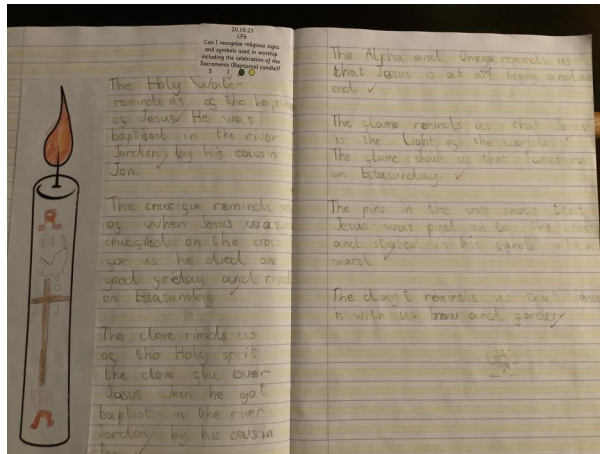 20.10.23
LF6
Can I recognise religious signs
and symbols used in worship
including the celebration of the
Sacraments (Baptismal candle)?
S 1
The Holy Water
reminds us of the
of Jesus He was
baptised in the river
Jorden, by his cousin
Jon.
The crucifix reminds us
of when Jesus was
crucfied on the cross
for us he died on
good friday and
on Estasunday.
The dove rimids us
of the Holy sprit
the dove flu over
Jesus when he got
baptist in the river
Jordon by his cousin
The Alpha and Omega reminds us
that Jesus is at begining and
end
The flame reminds us that
is the Light of the world.
The flame shows us that
on Estasunday.
The pins in the cross shows that
Jesus was pined on to the
and in his with a
The reminds us that
is with us now and